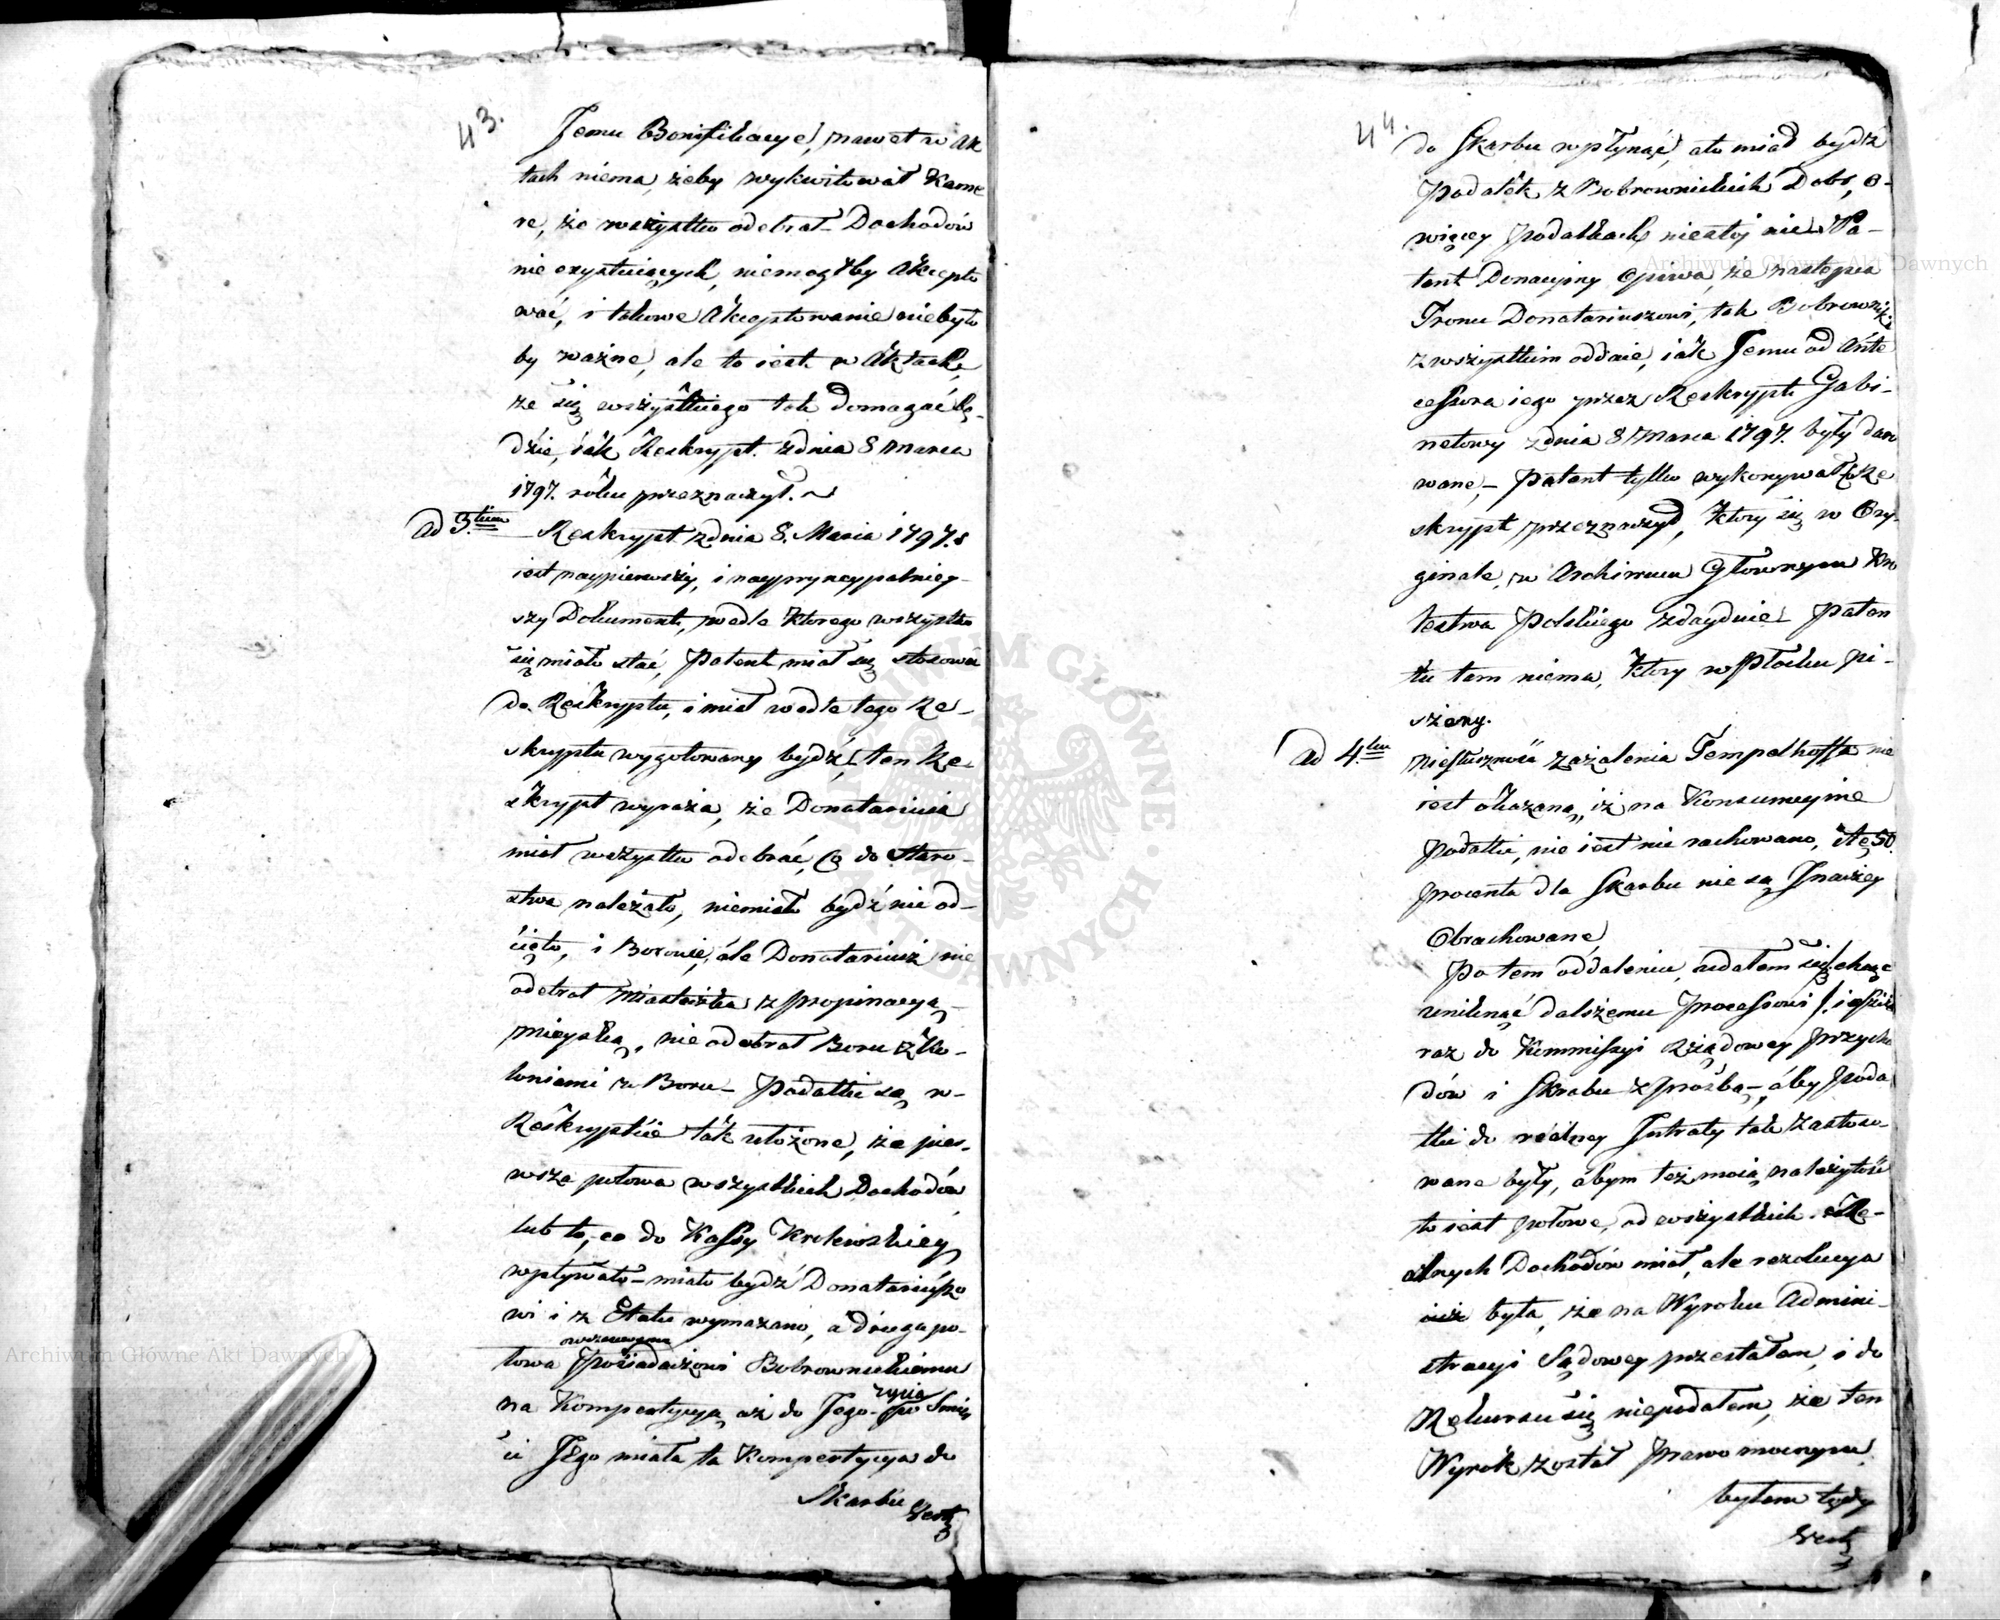 43.
Jemu Bonifikacye, nawet w Ak
tach niema, żeby wykwitował Kame
rę, że wszystko odebrał Dochodów
nie exystuiących, niemogłby Akcepto
wać, i takowe Akceptowanie niebyło
by ważne, ale to iest w Aktach,
że się wszystkiego tak domagać bę-
dzie, iak Reskrypt z dnia 8 Marca
1797. roku przeznaczył.
ad 3tium Reskrypt z dnia 8. Marca 1797. r
iest naypierwszy, i naypryncypalniey-
szy Dokument, wedle którego wszystko
się miało stać, Patent miał się stosować
do Reskryptu, i miał wedle tego Re-
skryptu wygotowany bydź, ten Re-
skrypt wyraża, że Donatariusz
miał wszystko odebrać, Co do Staro-
stwa należało, niemiało bydź nic od-
cięto, i Borowie, ale Donatariusz nie
odebrał Miasteczka z propinacyą
mieyską, nie odebrał Boru z Ko-
loniami w Boru – Podatki są w
Reskrypcie tak ułożone, że pier-
wsza połowa wszystkich Dochodów
lub to, co do Kassy Krolewskiey
wpływało – miało bydź Donatariuszo
wi i z Etatu wymazano, a druga po-
łowa Posiadaczowi Bobrownickiemu
wzwyżnym
na Kompetycyą aż do Jego życia po Śmier
ci Jego miała ta Kompetycya do
Skarbu
44.
do Skarbu wpłynąć, a to miał bydź
Podatek z Bobrownickich Dobr, o
więcey podatkach niestoi nic – Pa-
tent Donacyiny opiewa, że następca
Tronu Donatariuszowi, tak Bobrowniki
z wszystkim oddaie, iak Jemu od Ante
cessora iego przez Reskrypt Gabi-
netowy z dnia 8 Marca 1797. były daro
wane, – Patent tylko wykonywał co Re
skrypt przeznaczył, Który się w Ory-
ginale, w Archiwum Głownym Kro
lestwa Polskiego zdayduie – Paten
tu tam niema, Który w Płocku pi-
szany.
ad 4tum Niesłuszność zażalenia Tempelhoffa nie
iest okazaną, iż na Konsumcyine
podatki, nie iest nic rachowano, a te 50
procenta dla Skarbu nie są Inaczey
Obrachowane,
Po tem oddaleniu, udałem się /: chcąc
uniknąć dalszemu Processowi :/ ieszcze
raz do Kommissyi Rządowey Przycho
dów i Skarbu z prośbą –, aby poda
tki do realney Intraty tak zastoso-
wane były, abym też moią należytość
to iest połowę, od wszystkich Re-
alnych Dochodów miał, ale rezolucya
iuż była, że na Wyroku Admini-
stracyi Sądowey przestałem, i do
Rekursu się niepodałem, że ten
Wyrok został prawomocnym
byłem tedy